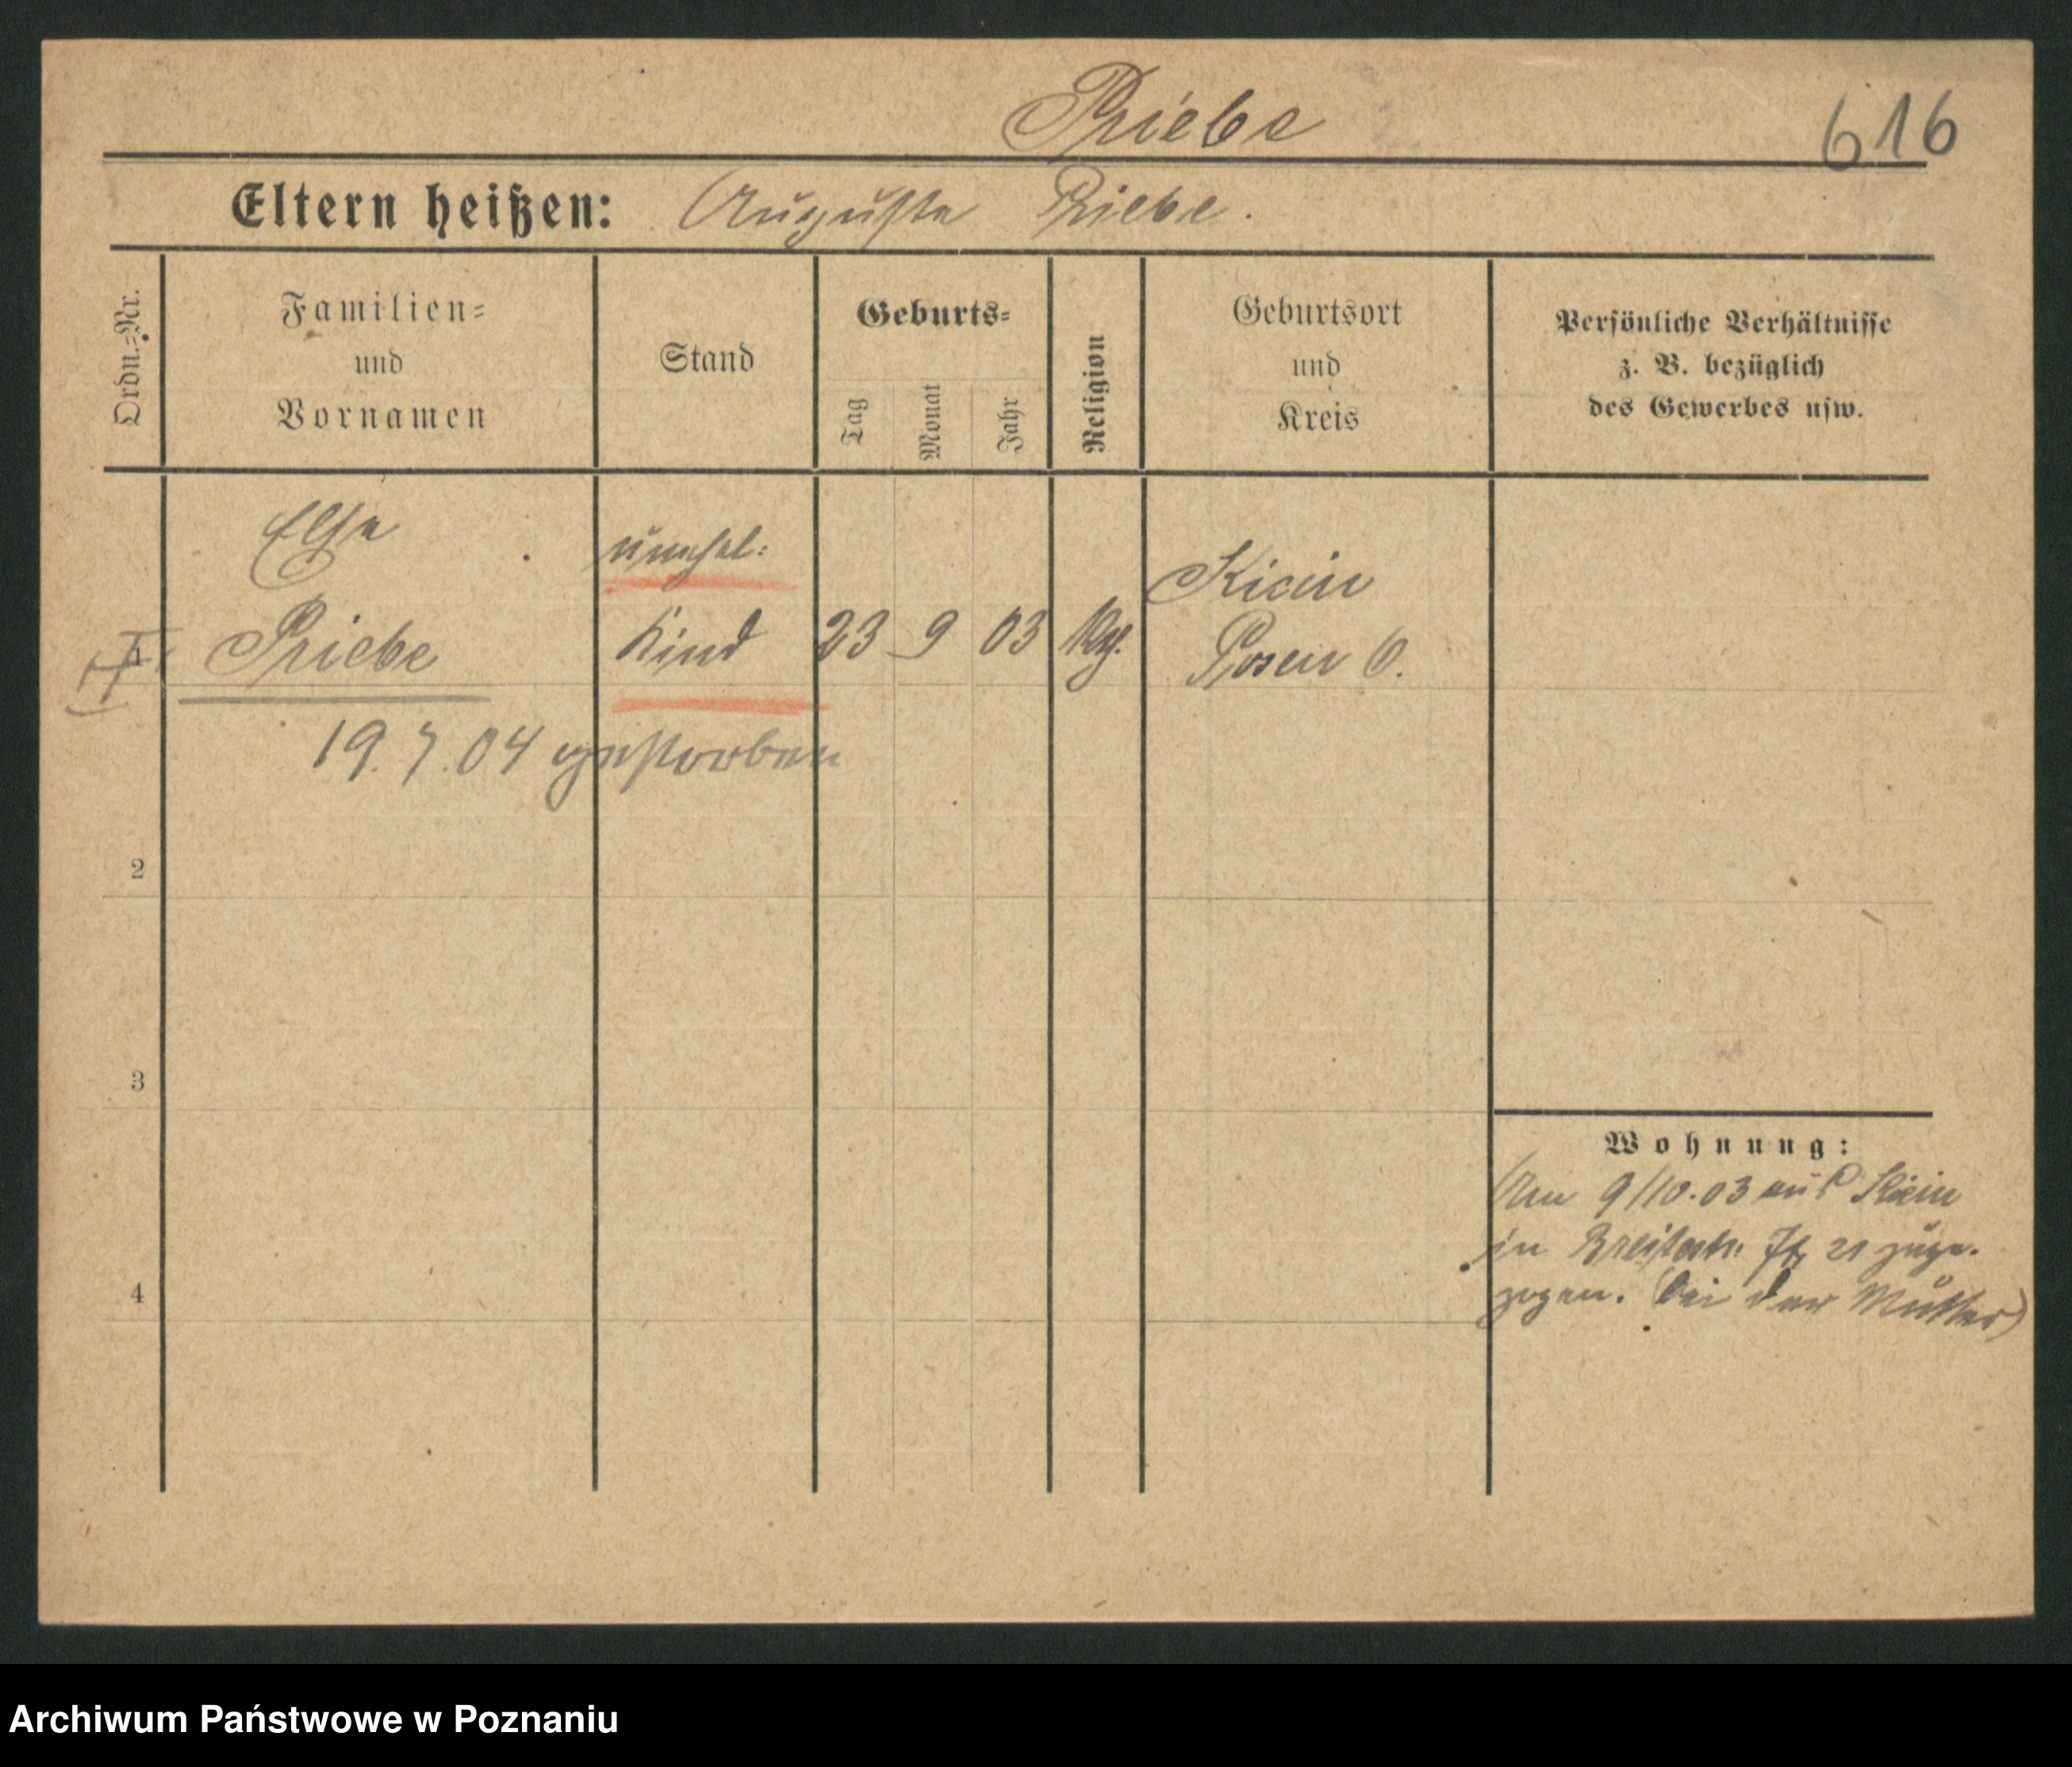 Priebe
616
Eltern heißen: Auguste Priebe.
Ordn.=Nr.
Familien=
und
Vornamen
Stand
Geburts=
Tag
Monat
Jahr
Religion
Geburtsort
und
Kreis
Persönliche Verhältnisse
z. B. bezüglich
des Gewerbes usw.
Else
unehel:
Kicin
1 Priebe Kind 23 9 03 Posen O.
19. 7. 04 gestorben
2
3
4
Wohnung:
Am 9/10.03 aus Kicin
in 21 zuge-
zogen. (bei der Mutter)
Archiwum Państwowe w Poznaniu